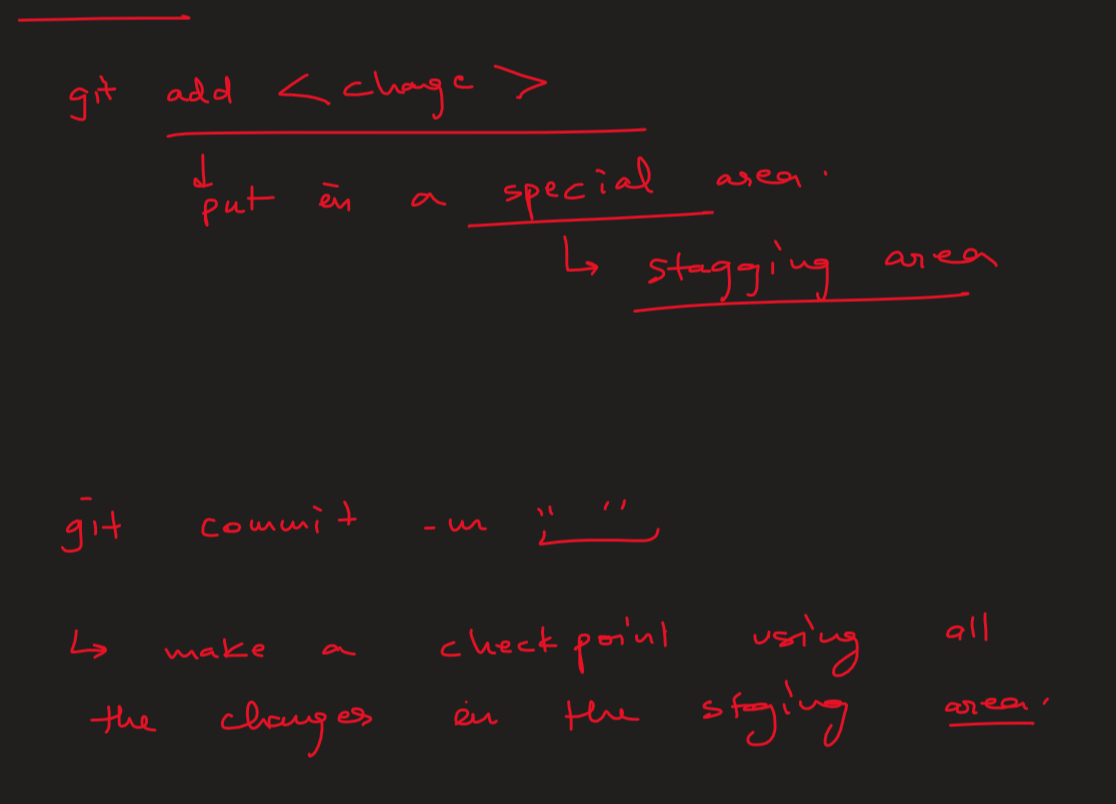 git add <change>
put in a special area.
stagging area
git commit -m " "
make a checkpoint using all
the changes in the staging area.